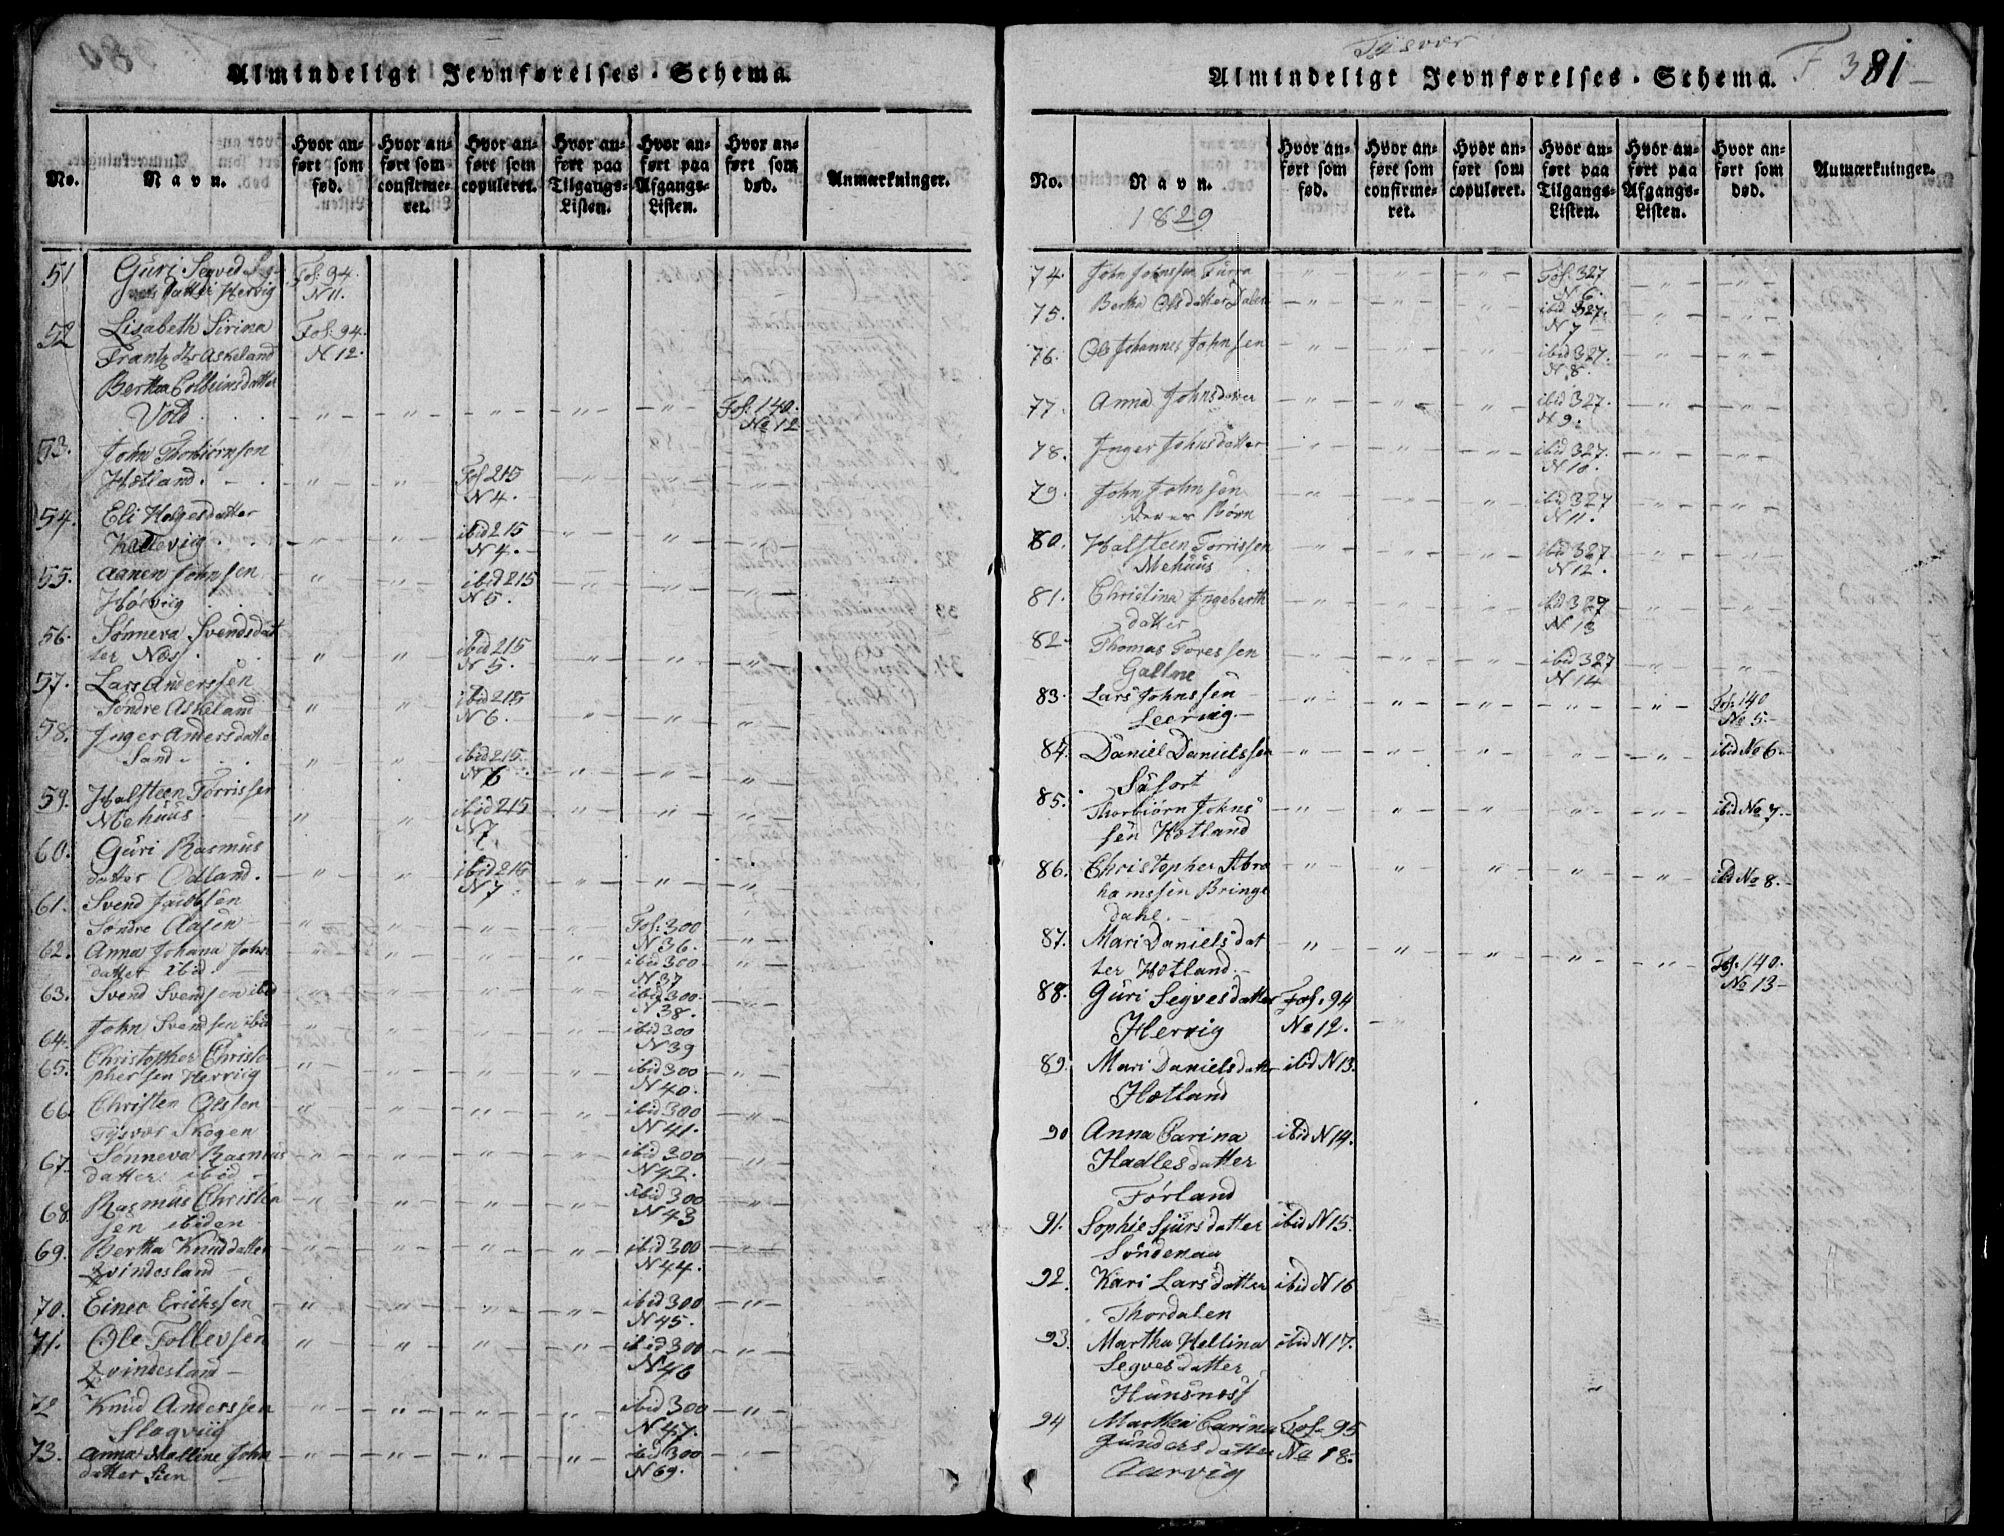 Almindeligt Jevnførelses-Schema.
No.
Navn.
Hvor anført som fød.
Hvor anført som confirmeret.
Hvor anført som copuleret.
Hvor anført paa Tilgangs-Listen.
Hvor anført paa Afgangs-Listen.
Hvor anført som død.
Anmærkninger.
51 Guri Segved Fol: 94.
datter Hervig N 11.
52 Lisabeth Sirina Fol: 94.
Frantz Askeland N 12.
Bertha Colbeinsdatter
Vold. " " " " " Fol: 140.
No 12
53. John Thorbiørnsen
Hetland. " " Fol 215 " " "
N 4.
54. Eli Helgesdatter
" " ibid 215 " " "
N 4.
55. Aanen Johnsen " " ibid 215 " " "
N 5.
56. Sønneva Svendsdat
ter Nes " " ibid 215 " " "
N 5.
57. Lars Anderssen
Søndre Askeland " " ibid 215 " " "
N 6.
58. Inger Andersdatter
Sand " " ibid 215. " " "
N 6
59. Halsteen Torrissen
Mehuus " " ibid 215 " " "
N 7.
60. Guri Rasmus
datter Odland. " " ibid 215 " " "
N 7
61. Svend Jacobsen
Søndre Aasen " " " " Fol: 300 "
N 36.
62. Anna Johana John " " " " ibid 300 "
datter ibid. N 37
63. Svend Svendsen ibid " " " " ibid 300. "
N 38.
64. John Svendsen ibid " " " " ibid 300
N 39
65. Christopher Christo
phersen Hervig " " " " ibid 300 "
N 40.
66 Christen Olssen " " " " ibid 300 "
Tysvær Skogen N 41.
67. Sønneva Rasmus " " " " ibid 300 "
datter ibid N 42.
68. Rasmus Christen " " " " ibid 300
sen ibiden N 43
69. Bertha Knuddatter " " " " ibid 300 "
Qvindesland N 44.
70. Einer Erichssen " " " " ibid 300 "
N 45.
71. Ole Tollevsen " " " " ibid 300 "
Qvindesland N 46
72 Knud Anderssen " " " " ibid 300 "
Slogvig N 47.
73. Anna Malline John " " " " ibid 300 "
datter N 69.
Tysvær
Almindeligt Jevnførelses-Schema. F 381
No.
Navn.
1829
Hvor anført som fød.
Hvor anført som confirmeret.
Hvor anført som copuleret.
Hvor anført paa Tilgangs-Listen.
Hvor anført paa Afgangs-Listen.
Hvor anført som død.
Anmærkninger.
74. John Johnssen " " " Fol: 327 " "
N 6.
75. Bertha Olsdatter Dalen " " " ibid 327. " "
N 7
76. Ole Johannes Johnsen " " " ibid 327. " "
N 8.
77. Anna Johnsdatter " " " ibid 327. " "
N 9.
78. Inger Johnsdatter " " " ibid 327. " "
N 10.
79. John Johnsen " " " ibid 327 " "
deres Børn N 11.
80. Halsteen Torrissen " " " ibid 327 " "
Mehuus N 12.
81. Christina Ingeberth " " " ibid 327 " "
datter N 13
82. Thomas Toressen " " " ibid 327 " "
N 14
83. Lars Johnssen " " " " " Fol: 140
Leervig. No 5.
84. Daniel Danielssen " " " " " ibid No 6.
85. Thorbiørn Johns " " " " " ibid No 7.
sen Hetland
86. Christopher Abra " " " " " ibid No 8.
hamssen Bringe
dahl.
87. Mari Daniels dat " " " " " Fol: 140.
ter Hetland. No 13
88. Guri Segvesdatter Fol: 94
Hervig No 12.
89. Mari Danielsdatter ibid N 13.
Hetland
90 Anna Carina ibid N 14.
Hadlesdatter
Førland
91. Sophie Sjurs datter ibid N 15.
Søndenaa
92. Kari Lars datter ibid N 16
Thordalen
93. Martha Hellina ibid N 17.
Segves datter
Hunsness
94 Martha Carina Fol: 95
Gunders datter No 18.
Aarvig